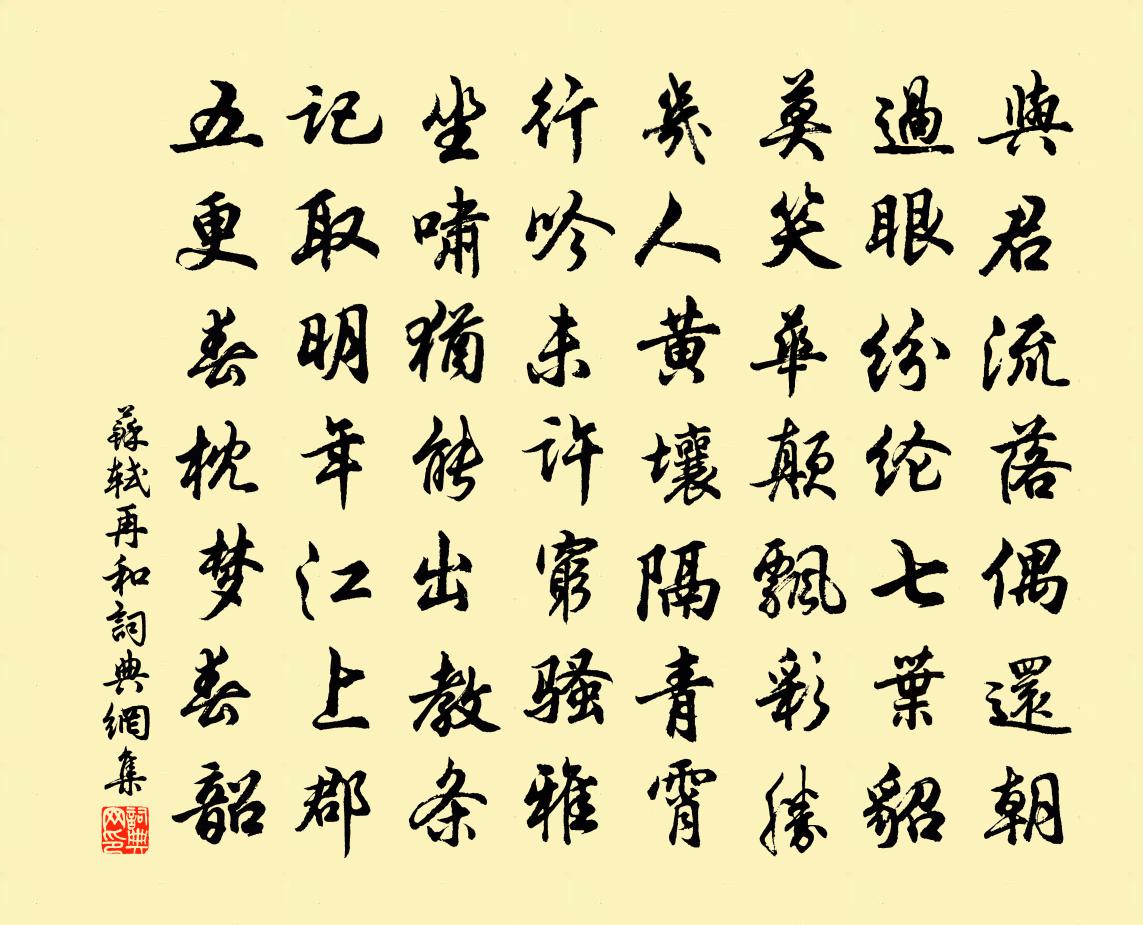 與君流落偶還朝
過眼紛纶七葉貂
莫笑華顛飄彩勝
幾人黄壤隔青霄
行吟未許窮騷雅
坐嘯猶能出教条
記取明年江上郡
五更春枕梦春韶
蘇軾再和詞典網集
詞典
网印